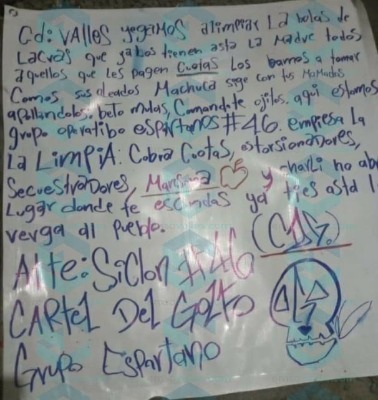 Cd: VALLES yegamos alimpiar La bolas de
Lacras que ya bos tienen asta La Madre todos
aquellos que les pagen Cuotas Los bamos a tomar
Comos sus aleados Machuca sige con tus Mamadas
apallandolos, beto mulas, Comandate ojitos. aqui estamos
grupo operatibo espartanos #46. empiesa la
La Limpia: Cobra Cuotas, estorsionadores,
Secuestradores, C5 y charli no ab
Lugar donde te escondas ya
verga al pueblo.
Atte: Siclon #46
(C1G.)
CARTEL DEL GOLFO
Grupo Espartano